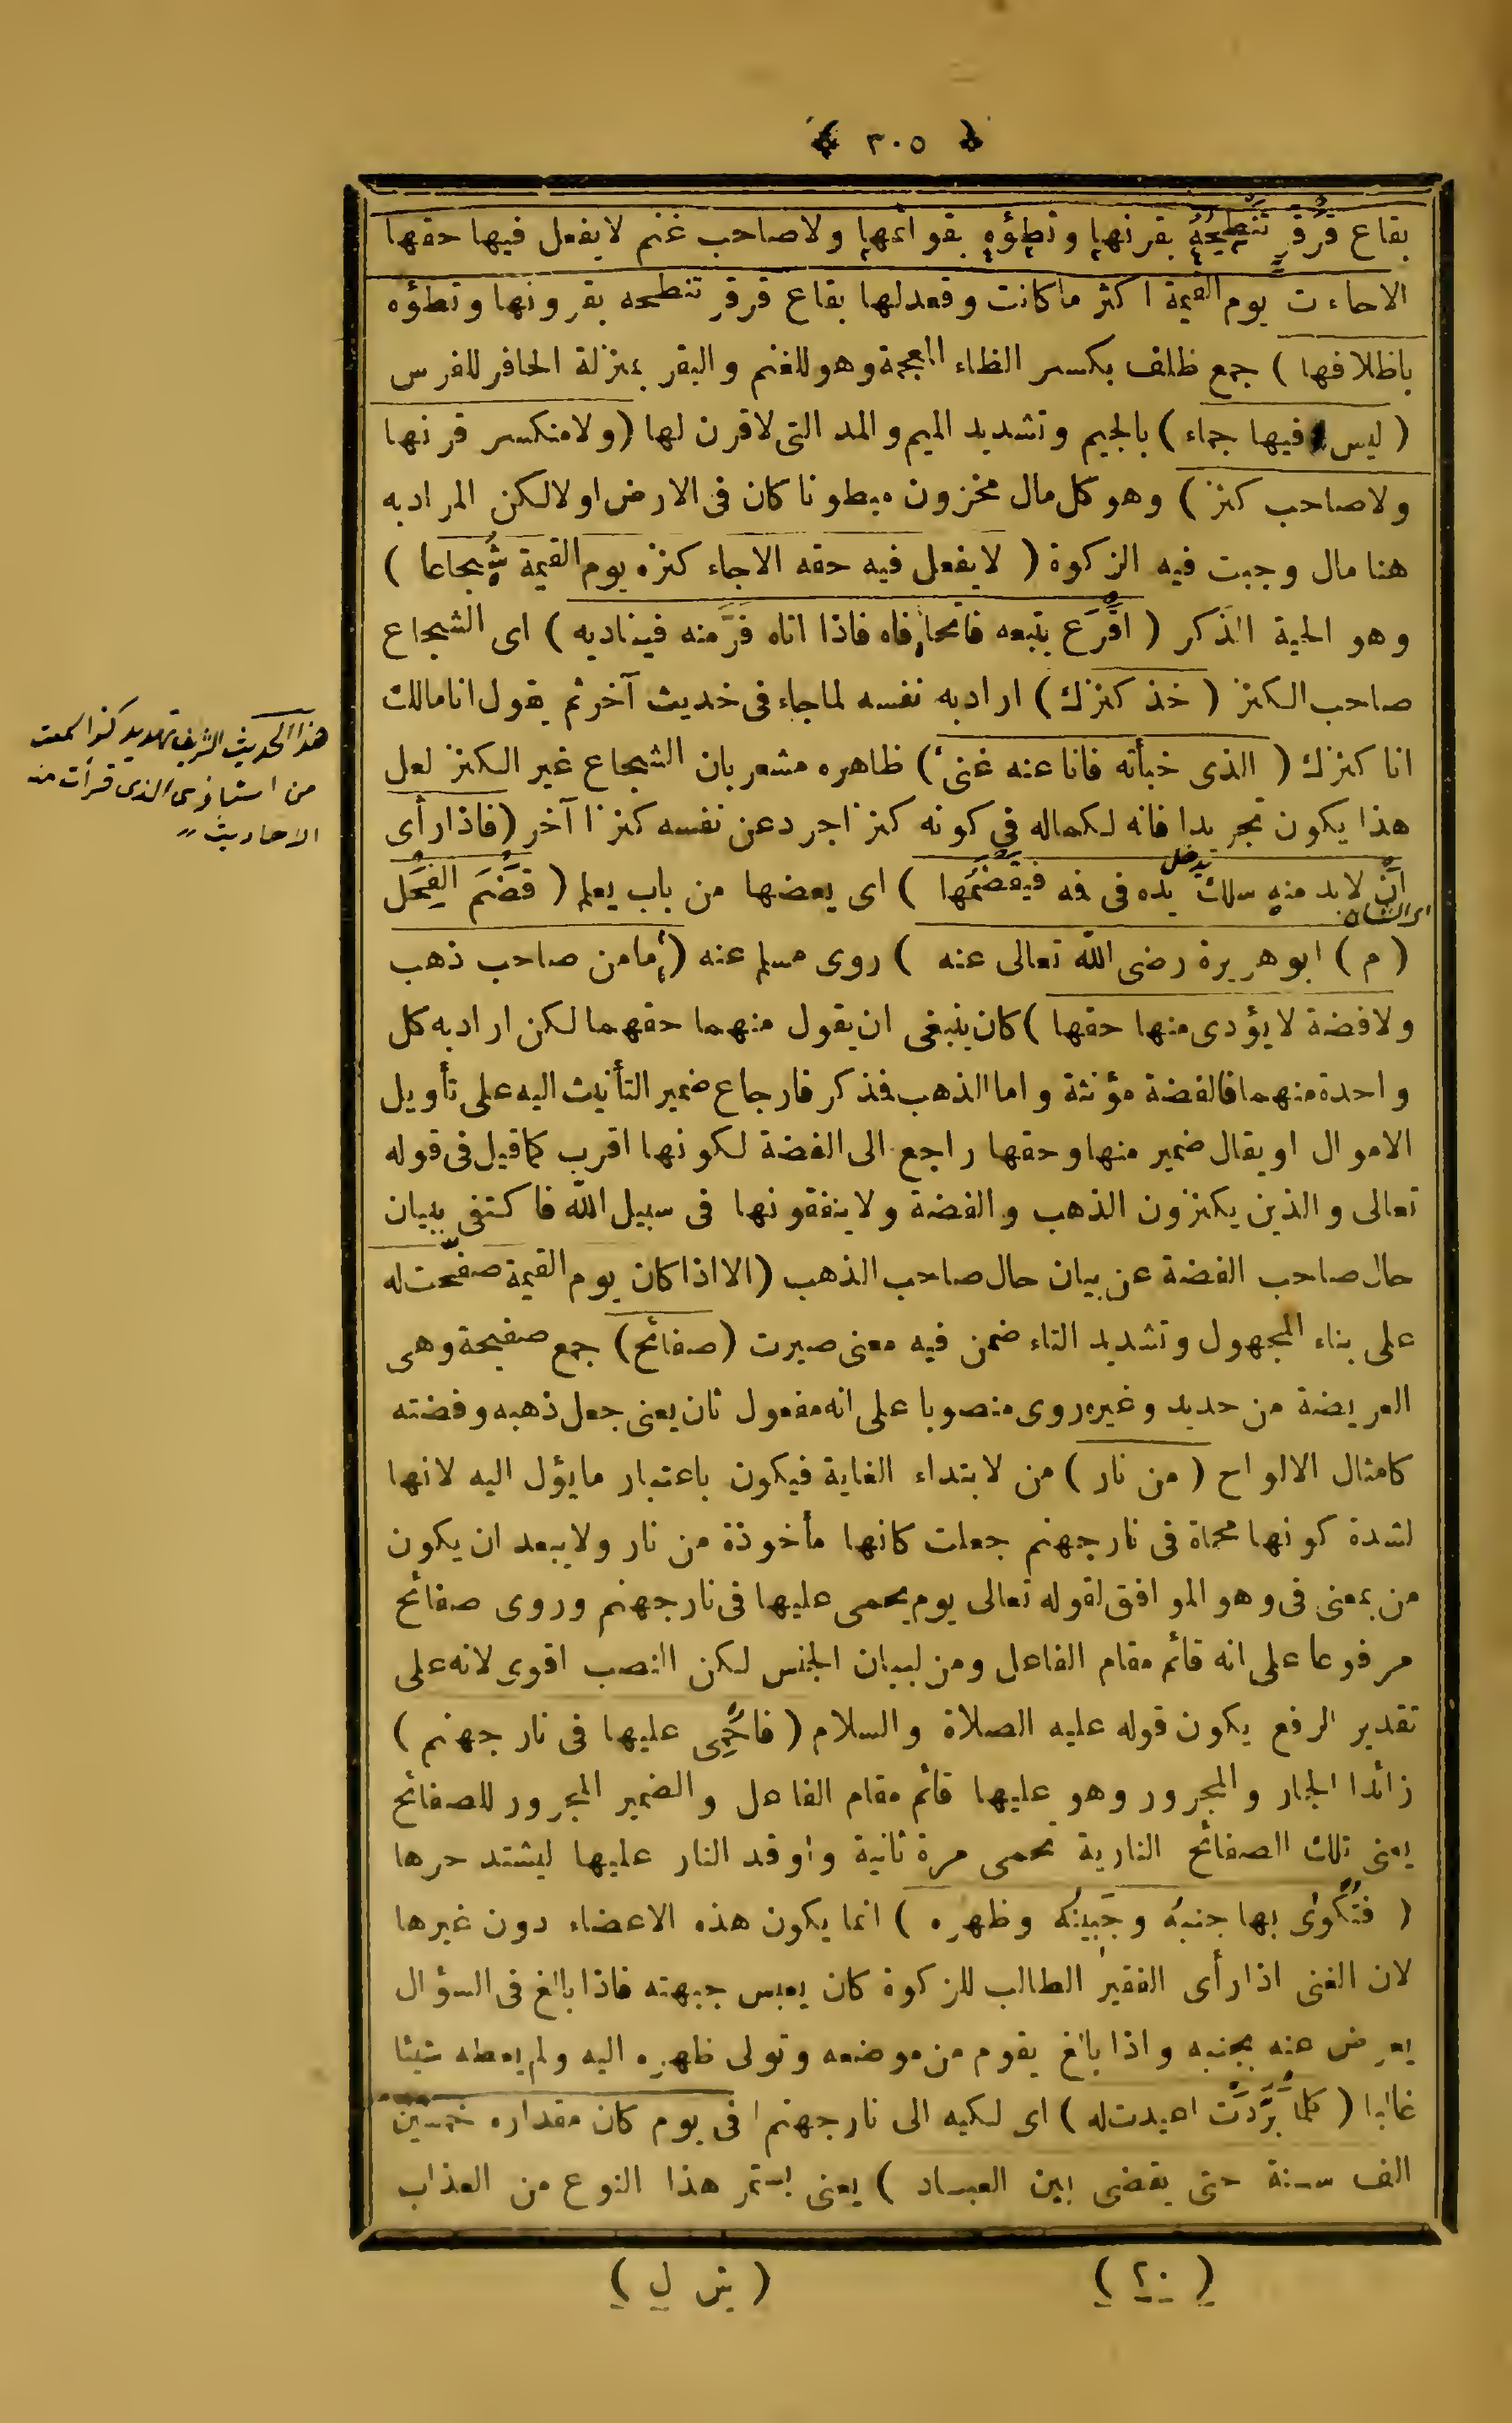 ﴿ ٣٠٥ ﴾
بقاع قرقر تنطحه بقرنها وتطؤه بقوائمها ولاصاحب غنم لايفعل فيها حقها
الاجاءت يوم القيمة اكثر ماكانت وقعدلها بقاع قرقر تنطحه بقرونها وتطؤه
باظلافها ) جمع ظلف بكسر الظاء المعجمة وهو للغنم والبقر بمنزلة الحافر للفرس
( ليس فيها جماء ) بالجيم وتشديد الميم والمد التى لاقرن لها ( ولامنكسر قرنها
ولاصاحب كنز ) وهو كل مال مخزون مبطونا كان فى الارض اولا لكن المراد به
هنا مال وجبت فيه الزكوة ( لايفعل فيه حقه الاجاء كنزه يوم القيمة شُجاعا )
وهو الحية الذكر ( اقْرَع يتبعه فاتحا فاه فاذا اتاه فَرَّ منه فيناديه ) اى الشجاع
صاحب الكنز ( خذ كنزك ) اراد به نفسه لماجاء فى حديث آخر ثم يقول انا مالك
انا كنزك ( الذى خبأته فانا عنه غنى ) ظاهره مشعر بان الشجاع غير الكنز لعل
هذا يكون تجريدا فانه لكماله فى كونه كنزا جرد عن نفسه كنزا آخر ( فاذا رأى
يدخل
ان لابد منه سلك يده فى فه فيَقْضَمُها ) اى يعضها من باب يعلم ( قَضْمَ الفَحْل
اى الشان
( م ) ابوهريرة رضى الله تعالى عنه ) روى مسلم عنه ( مامن صاحب ذهب
ولافضة لايؤدى منها حقها ) كان ينبغى ان يقول منهما حقهما لكن اراد به كل
واحدة منهما فالفضة مؤنثة واما الذهب فذكر فارجاع ضمير التأنيث اليه على تأويل
الاموال او يقال ضمير منها وحقها راجع الى الفضة لكونها اقرب كما قيل فى قوله
تعالى والذين يكنزون الذهب والفضة ولاينفقونها فى سبيل الله فاكتفى ببيان
حال صاحب الفضة عن بيان حال صاحب الذهب ( الا اذا كان يوم القيمة صفحت له
على بناء المجهول وتشديد التاء ضمن فيه معنى صيرت ( صفائح ) جمع صفيحة وهى
العريضة من حديد وغيره روى منصوبا على انه مفعول ثان يعنى جعل ذهبه وفضته
كامثال الالواح ( من نار ) من لابتداء الغاية فيكون باعتبار مايؤل اليه لانها
لشدة كونها محماة فى نار جهنم جعلت كانها مأخوذة من نار ولايبعد ان يكون
من بمعنى فى وهو الموافق لقوله تعالى يوم يحمى عليها فى نار جهنم وروى صفائح
مرفوعا على انه قائم مقام الفاعل ومن لبيان الجنس لكن النصب اقوى لانه على
تقدير الرفع يكون قوله عليه الصلاة والسلام ( فاُحْمِى عليها فى نار جهنم )
زائدا الجار والمجرور وهو عليها قائم مقام الفاعل والضمير المجرور للصفائح
يعنى تلك الصفائح النارية تحمى مرة ثانية واوقد النار عليها ليشتد حرها
( فتُكْوى بها جنبهُ وجَبِينُه وظهره ) انما يكون هذه الاعضاء دون غيرها
لان الغنى اذا رأى الفقير الطالب للزكوة كان يعبس جبهته فاذا بالغ فى السؤال
يعرض عنه بجنبه واذا بالغ يقوم من موضعه وتولى ظهره اليه ولم يعطه شيئا
غالبا ( كلما بَرَدَتْ اعيدت له ) اى لكيه الى نار جهنم ( فى يوم كان مقداره خمسين
الف سنة حتى يقضى بين العباد ) يعنى يستمر هذا النوع من العذاب
( ٢٠ ) ( نى ل )
هذا الحديث الشريف تهديد
من استاذى الذى قرأت منه
الاحاديث